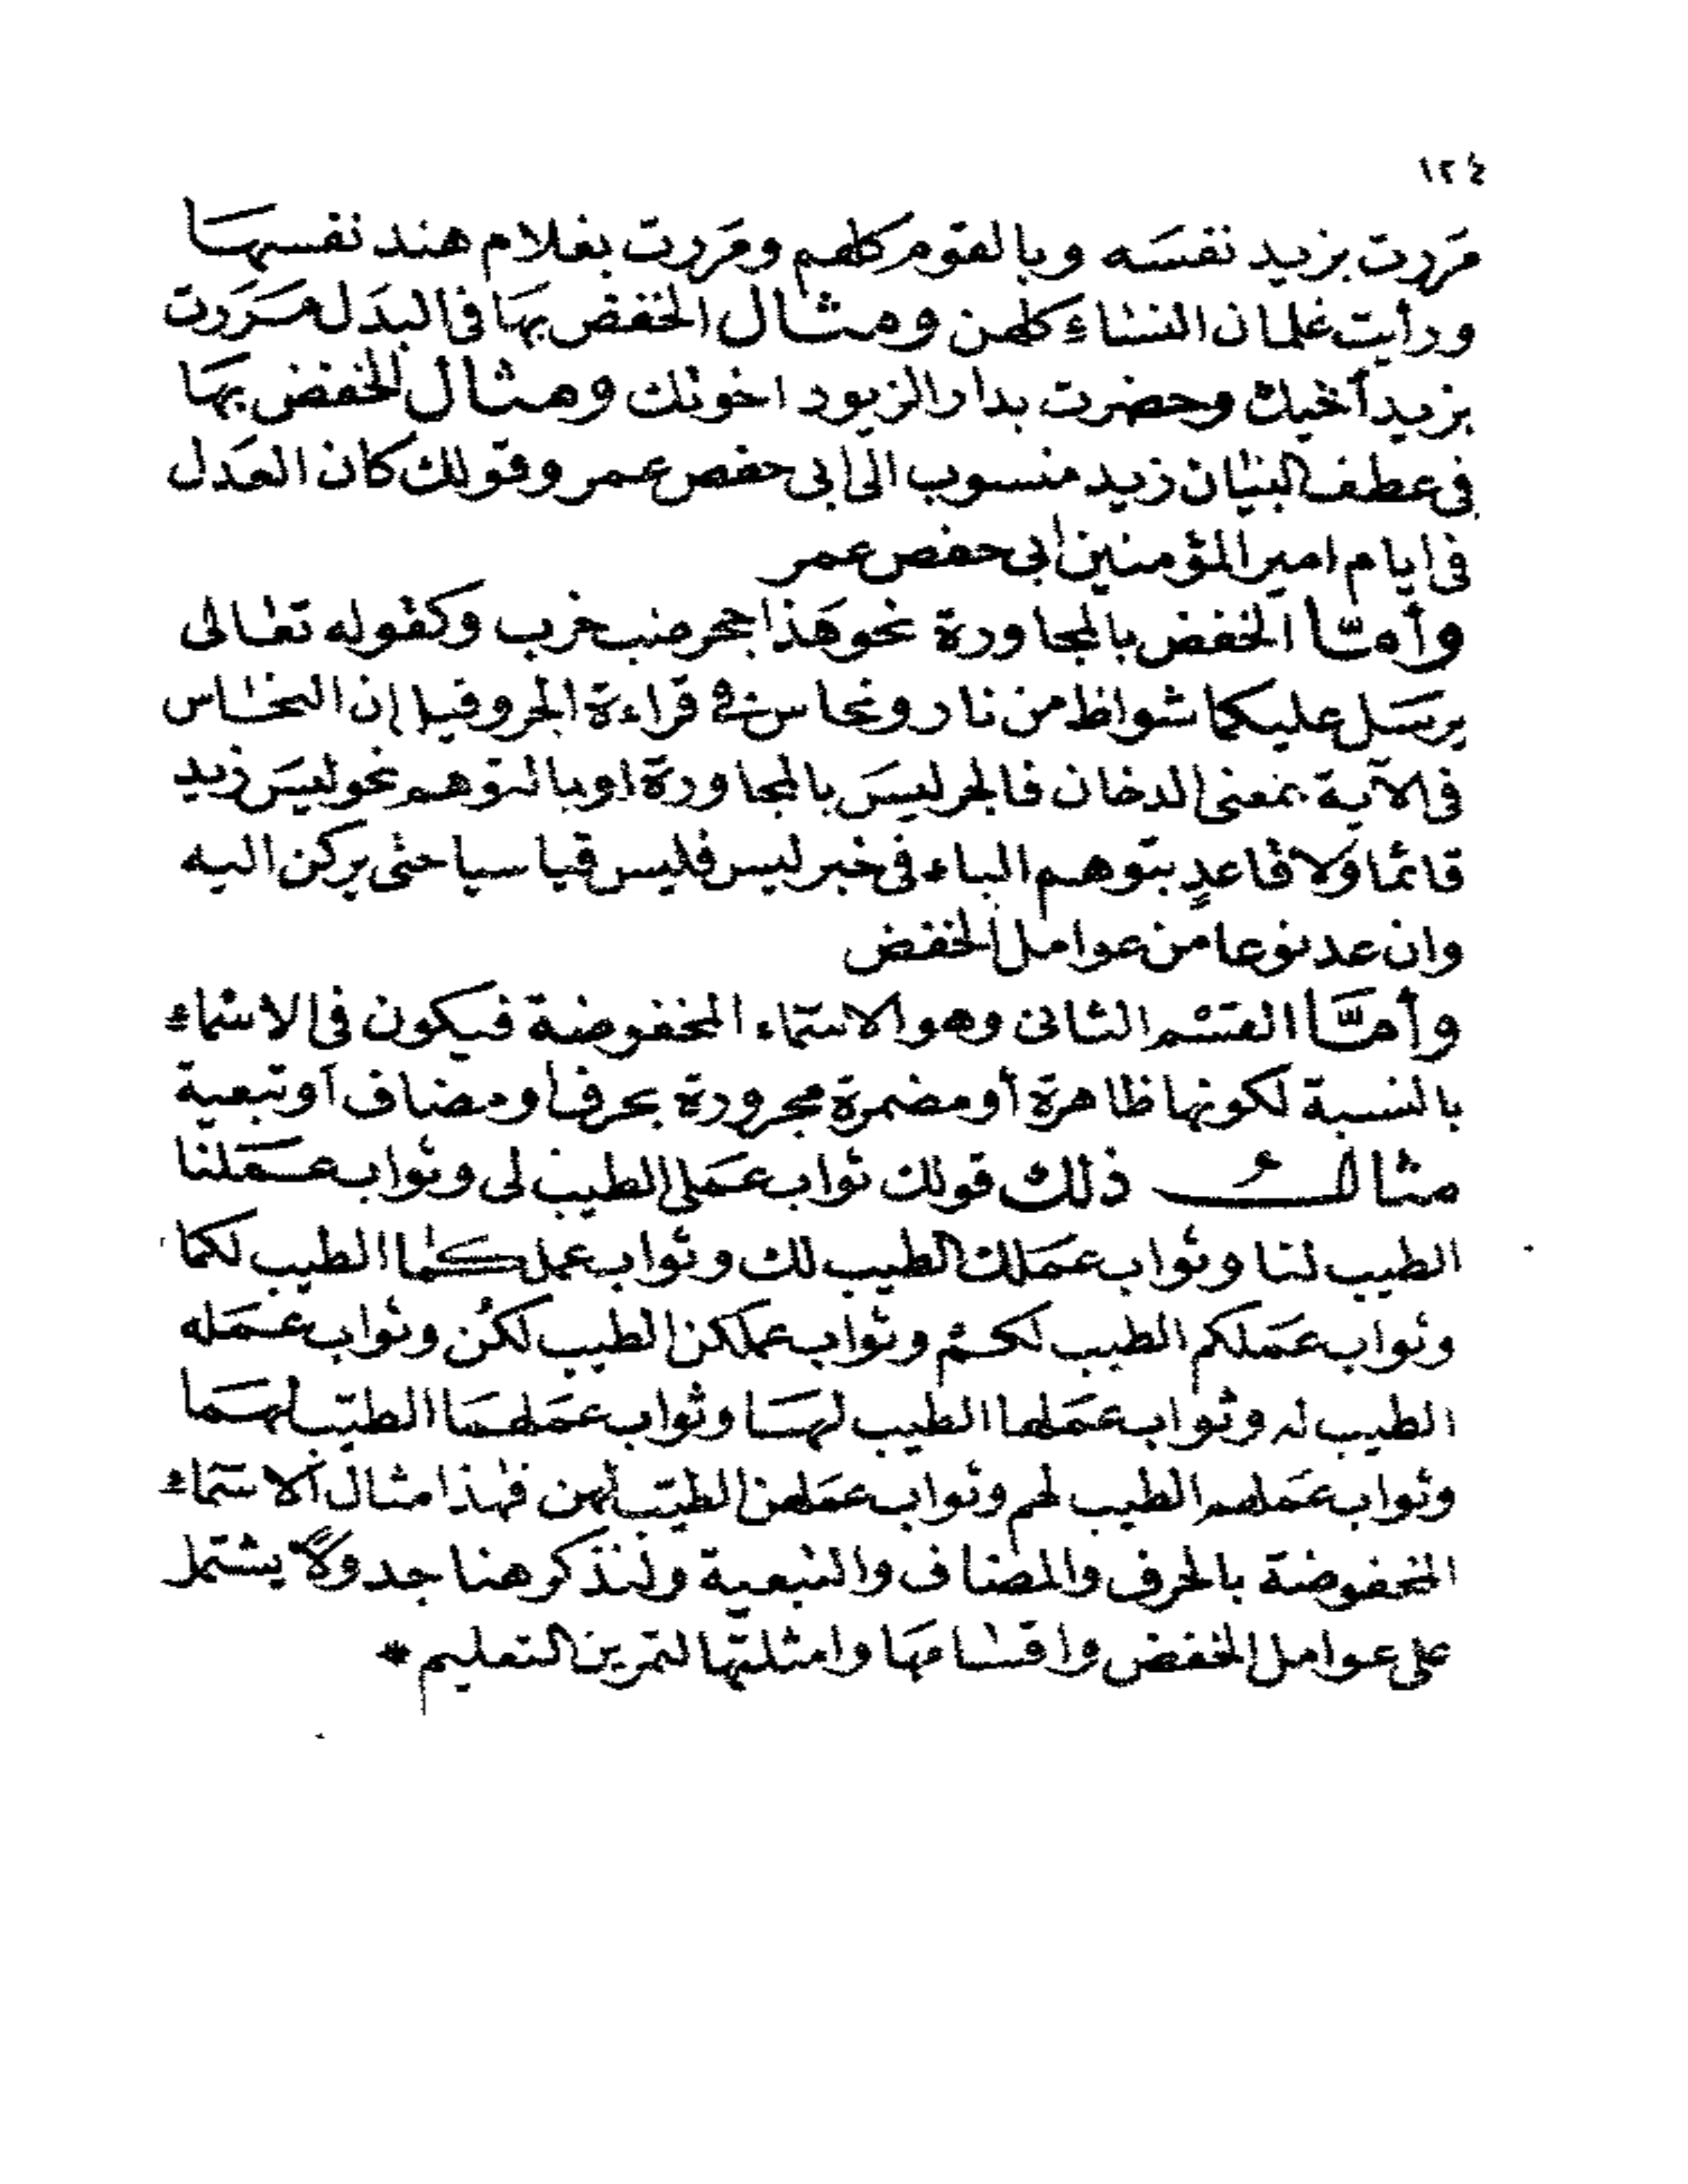 ١٢٤
مَررت بزيد نفسَه وبالقوم كلهم ومَررت بغلام هند نفسهَا
ورأيت غلمان النساء كلهن ومثال الخفض بهَا فى البدَل مَرَرت
بزيد أخيك وحضرت بدار الزيود اخوتك ومثال الخفض بهَا
فى عطف البيان زيد منسوب الى ابى حفص عمر وقولك كان العَدل
فى ايام امير المؤمنين ابى حفص عمر
وأمّا الخفض بالمجاورة نحو هَذا جحر ضب خرب وكقوله تعالى
يرسَل عليكما شواظ من نار ونحاس فى قراءة الجر وقيل إن النحاس
فى الآية بمعنى الدخان فالجر ليسَ بالمجاورة او بالتوهم نحو ليسَ زيد
قائما وَلا قاعدٍ بتوهم الباء فى خبر ليس فليس قياسيا حتى يركن اليه
وان عد نوعا من عوامل الخفض
وأمَّا القسْم الثانى وهو الاسَماء المخفوضة فيكون فى الاسْماء
بالنسبة لكونها ظاهرة أو مضمرة مجرورة بحرف او مضاف أو تبعية
مثال ذلك قولك ثواب عمَلى الطيب لى وثواب عَمَلنا
الطيب لنا وثواب عمَلك الطيب لك وثواب عملكما الطيب لكما
وثواب عمَلكم الطيب لكم وثواب عملكن الطيب لكن وثواب عمَله
الطيب له وثواب عمَلها الطيب لهَا وثواب عمَلهمَا الطيّب لهمَا
وثواب عمَلهم الطيب لهم وثواب عمَلهن الطيّب لهن فهذا مثال الاسَماء
المخفوضة بالحرف والمضاف والتبعية ولنذكر هنا جدولاً يشتمل
على عوامل الخفض واقسامهَا وامثلتها لتمرين التعليم *